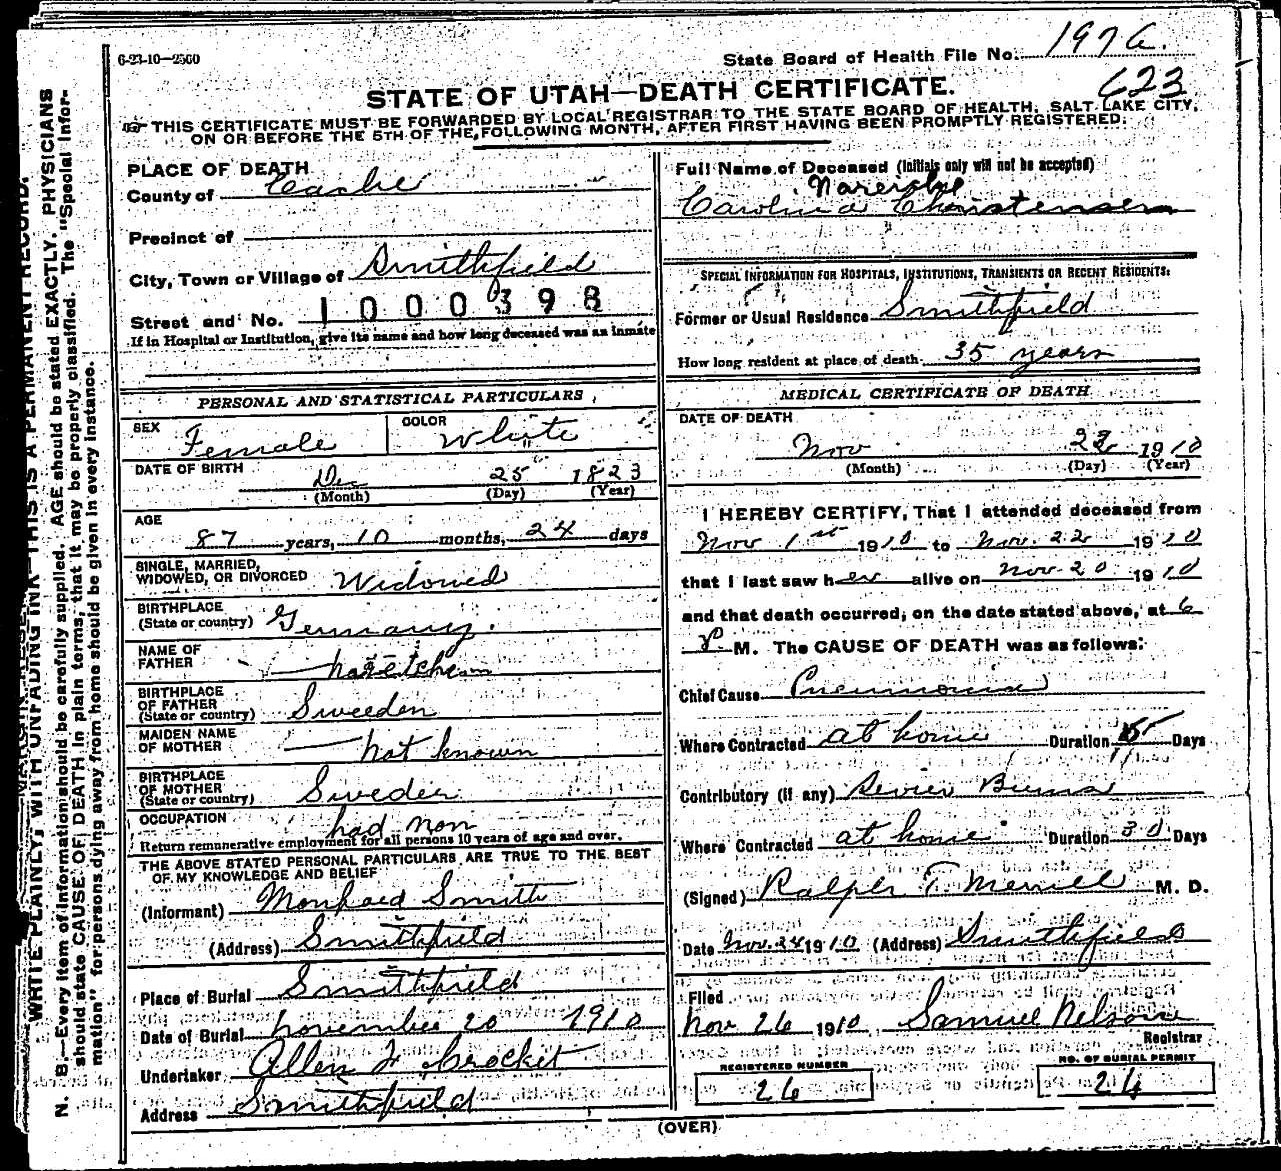 6-23-10—2500
State Board of Health File No. 1976.
623
STATE OF UTAH—DEATH CERTIFICATE.
THIS CERTIFICATE MUST BE FORWARDED BY LOCAL REGISTRAR TO THE STATE BOARD OF HEALTH, SALT LAKE CITY,
ON OR BEFORE THE 5TH OF THE FOLLOWING MONTH, AFTER FIRST HAVING BEEN PROMPTLY REGISTERED.
WRITE PLAINLY, WITH UNFADING INK—THIS IS A PERMANENT RECORD.
N. B.—Every item of information should be carefully supplied. AGE should be stated EXACTLY. PHYSICIANS
should state CAUSE OF DEATH in plain terms, that it may be properly classified. The "Special Infor-
mation" for persons dying away from home should be given in every instance.
PLACE OF DEATH
County of Cache
Precinct of
City, Town or Village of Smithfield
Street and No. 1000398
If in Hospital or Institution, give its name and how long deceased was an inmate
PERSONAL AND STATISTICAL PARTICULARS
SEX Female COLOR White
DATE OF BIRTH Dec 25 1823
(Month) (Day) (Year)
AGE
87 years, 10 months, 24 days
SINGLE, MARRIED,
WIDOWED, OR DIVORCED Widowed
BIRTHPLACE
(State or country) Germany.
NAME OF
FATHER
BIRTHPLACE
OF FATHER
(State or country) Sweeden
MAIDEN NAME
OF MOTHER not known
BIRTHPLACE
OF MOTHER
(State or country) Sweden
OCCUPATION had non
Return remunerative employment for all persons 10 years of age and over.
THE ABOVE STATED PERSONAL PARTICULARS ARE TRUE TO THE BEST
OF MY KNOWLEDGE AND BELIEF
(Informant) Smith
(Address) Smithfield
Place of Burial Smithfield
Date of Burial November 20 1910
Undertaker Allen F Crocket
Address Smithfield
Full Name of Deceased (Initials only will not be accepted)
Christensen
SPECIAL INFORMATION FOR HOSPITALS, INSTITUTIONS, TRANSIENTS OR RECENT RESIDENTS:
Former or Usual Residence Smithfield
How long resident at place of death 35 years
MEDICAL CERTIFICATE OF DEATH
DATE OF DEATH
Nov 1910
(Month) (Day) (Year)
I HEREBY CERTIFY, That I attended deceased from
Nov 1st 1910 to Nov. 22 1910
that I last saw her alive on Nov 20 1910
and that death occurred, on the date stated above, at 6
P. M. The CAUSE OF DEATH was as follows:
Chief Cause Pneumonia
Where Contracted at home Duration Days
Contributory (if any) Burns
Where Contracted at home Duration 30 Days
(Signed) Ralph T. Merrill M. D.
Date Nov. 24 1910 (Address) Smithfield
Filed
Nov 26 1910, Samuel Nelson
Registrar
REGISTERED NUMBER
26
NO. OF BURIAL PERMIT
26
(OVER)